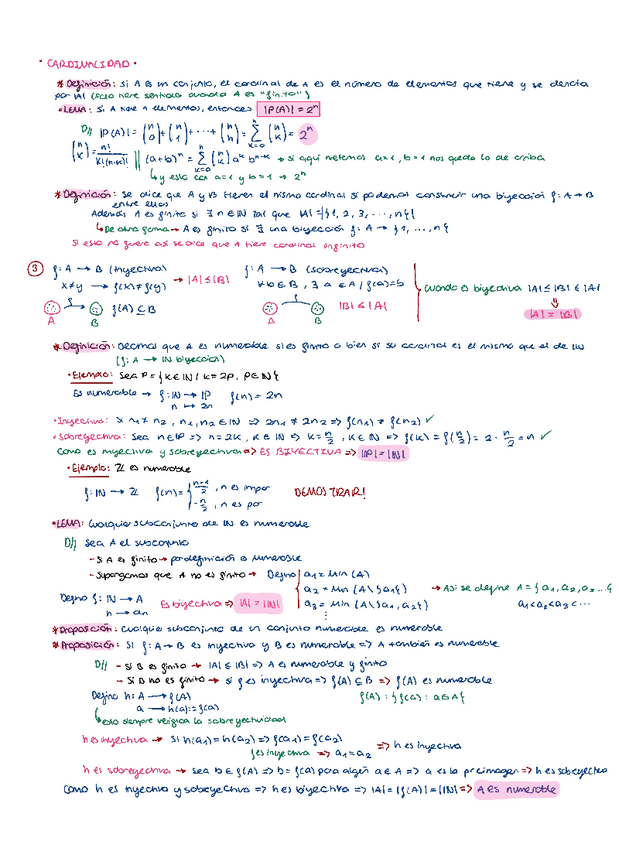 · CARDINALIDAD ·
* Definición: Si A es un conjunto, el cardinal de A es el número de elementos que tiene y se denota
por |A| (solo tiene sentido cuando A es "finito")
· LEMA: Si A tiene n elementos, entonces |P(A)| = 2^n
D// |P(A)| = (n 0) + (n 1) + ··· + (n n) = Σ_{k=0}^{n} (n k) = 2^n
(n k) = n!/(k!(n-k)!) || (a+b)^n = Σ_{k=0}^{n} (n k) a^k b^{n-k} → si aquí metemos a=1, b=1 nos queda lo de arriba
↳ y esto con a=1 y b=1 → 2^n
* Definición: Se dice que A y B tienen el mismo cardinal si podemos construir una biyección f: A → B
entre ellos
Además A es finito si ∃ n ∈ IN tal que |A| = |{1, 2, 3, ..., n}|
↳ De otra forma → A es finito si ∃ una biyección f: A → {1, ..., n}
Si esto no fuera así se dice que A tiene cardinal infinito
3 f: A → B (inyectiva) → |A| ≤ |B|
x ≠ y → f(x) ≠ f(y)
f(A) ⊆ B
A B
f: A → B (sobreyectiva)
∀ b ∈ B, ∃ a ∈ A / f(a) = b
|B| ≤ |A|
A B
Cuando es biyectiva |A| ≤ |B| ≤ |A|
⇓
|A| = |B|
* Definición: Decimos que A es numerable si es finito o bien si su cardinal es el mismo que el de IN
(f: A → IN biyección)
· Ejemplo: Sea P = {k ∈ IN / k = 2p, p ∈ IN}
Es numerable → f: IN → IP f(n) = 2n
n → 2n
· Inyectiva: Si n1 ≠ n2, n1, n2 ∈ IN ⇒ 2n1 ≠ 2n2 ⇒ f(n1) ≠ f(n2) ✓
· Sobreyectiva: Sea n ∈ IP ⇒ n = 2k, k ∈ IN ⇒ k = n/2, k ∈ IN ⇒ f(k) = f(n/2) = 2 · n/2 = n ✓
Como es inyectiva y sobreyectiva ⇒ ES BIYECTIVA ⇒ |IP| = |IN|
· Ejemplo: Z es numerable
f: IN → Z f(n) = { n-1/2, n es impar
-n/2, n es par
DEMOSTRAR!
· LEMA: Cualquier subconjunto de IN es numerable
D// Sea A el subconjunto
- Si A es finito → por definición es numerable
- Supongamos que A no es finito → Defino a1 = min (A)
a2 = min (A \ {a1})
a3 = min (A \ {a1, a2})
⋮
→ Así se define A = {a1, a2, a3 ...}
a1 < a2 < a3 < ···
Defino f: IN → A
n → an
Es biyectiva ⇒ |A| = |IN|
* Proposición: Cualquier subconjunto de un conjunto numerable es numerable
* Proposición: Si f: A → B es inyectiva y B es numerable ⇒ A también es numerable
D// - Si B es finito → |A| ≤ |B| ⇒ A es numerable y finito
- Si B no es finito → si f es inyectiva ⇒ f(A) ⊆ B ⇒ f(A) es numerable
Defino h: A → f(A) f(A) : {f(a) : a ∈ A}
a → h(a) := f(a)
↳ esto siempre verifica la sobreyectividad
h es inyectiva → Si h(a1) = h(a2) ⇒ f(a1) = f(a2)
f es inyectiva ⇒ a1 = a2
⇒ h es inyectiva
h es sobreyectiva → Sea b ∈ f(A) ⇒ b = f(a) para algún a ∈ A ⇒ a es la preimagen ⇒ h es sobreyectiva
Como h es inyectiva y sobreyectiva ⇒ h es biyectiva ⇒ |A| = |f(A)| = |IN| ⇒ A es numerable